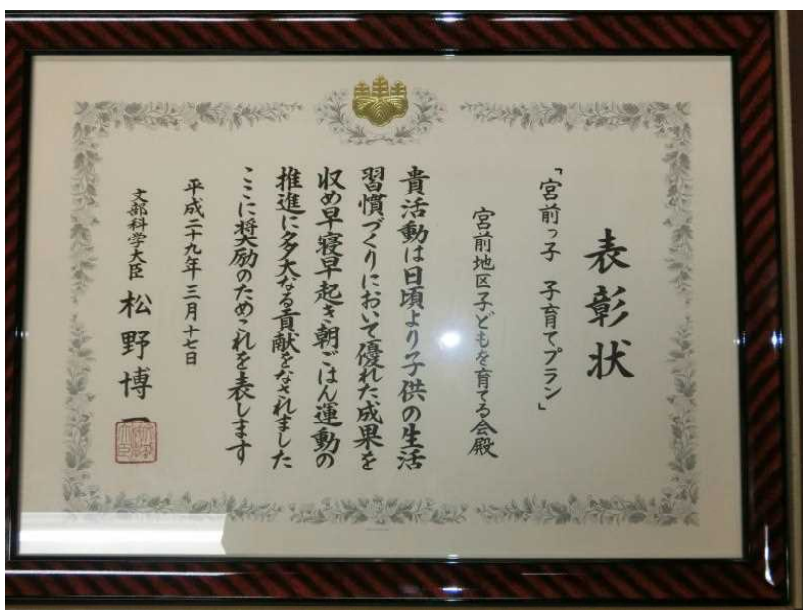 表彰状
「宮前っ子　子育てプラン」
宮前地区子どもを育てる会殿
貴活動は日頃より子供の生活
習慣づくりにおいて優れた成果を
収め早寝早起き朝ごはん運動の
推進に多大なる貢献をなされました
ここに奨励のためこれを表します
平成二十九年三月十七日
文部科学大臣　松野博一